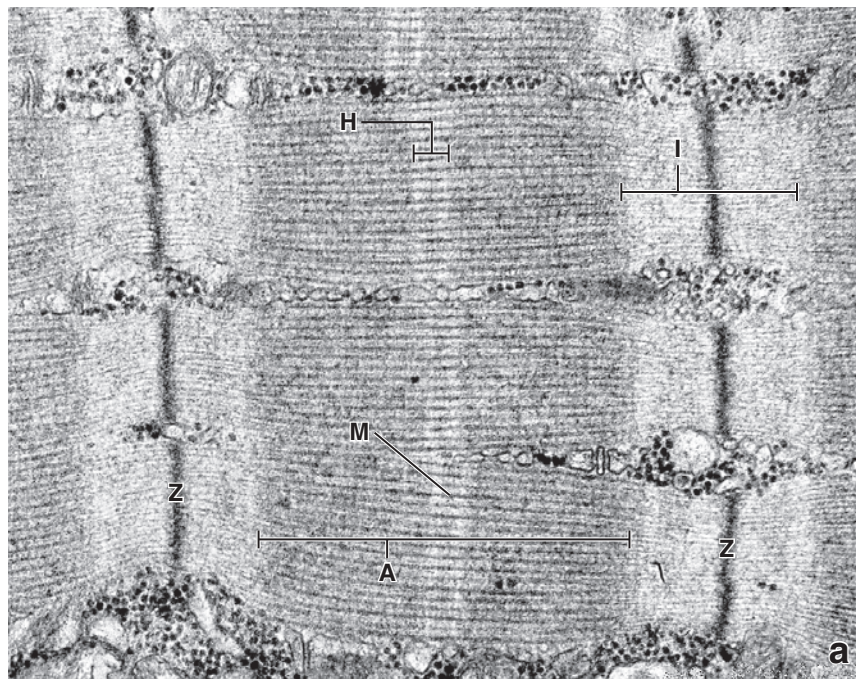 H
I
M
Z
A
Z
a